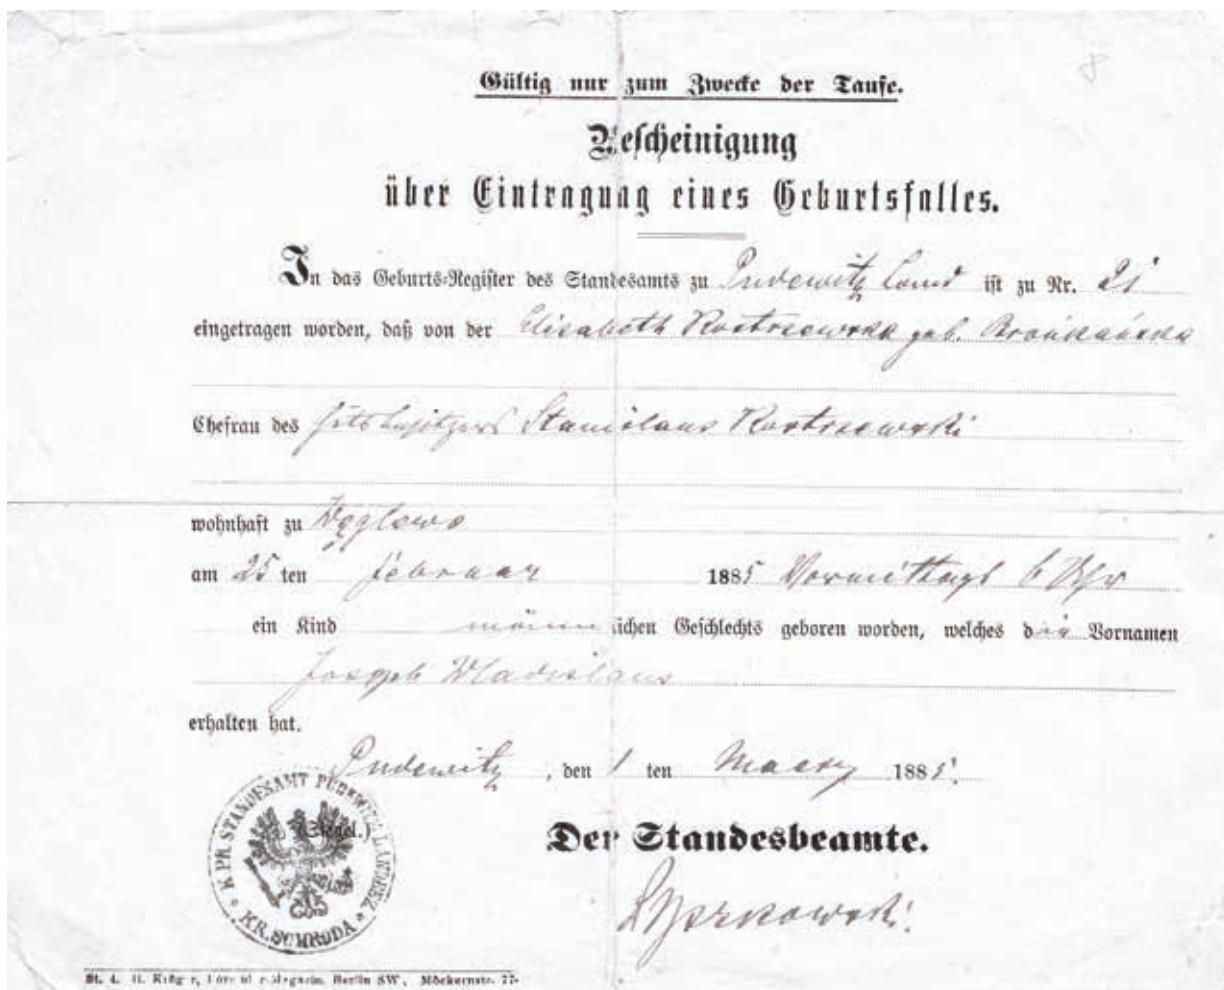 Gültig nur zum Zwecke der Taufe.
Bescheinigung
über Eintragung eines Geburtsfalles.
In das Geburts-Register des Standesamts zu Pudewitz Land ist zu Nr. 21
eingetragen worden, daß von der Elisabeth Kostrzewska geb. Brońkańska
Ehefrau des Gutsbesitzers Stanislaus Kostrzewski
wohnhaft zu Węglewo
am 25 ten Februar 1885 Vormittags 6 Uhr
ein Kind männlichen Geschlechts geboren worden, welches die Vornamen
Joseph Wladislaus
erhalten hat.
Pudewitz, den 1 ten Maerz 1885.
(Siegel.)
K. PR. STANDESAMT PUDEWITZ LANDBEZ.
KR. SCHRODA
Der Standesbeamte.
Berlin SW., Möckernstr. 77.